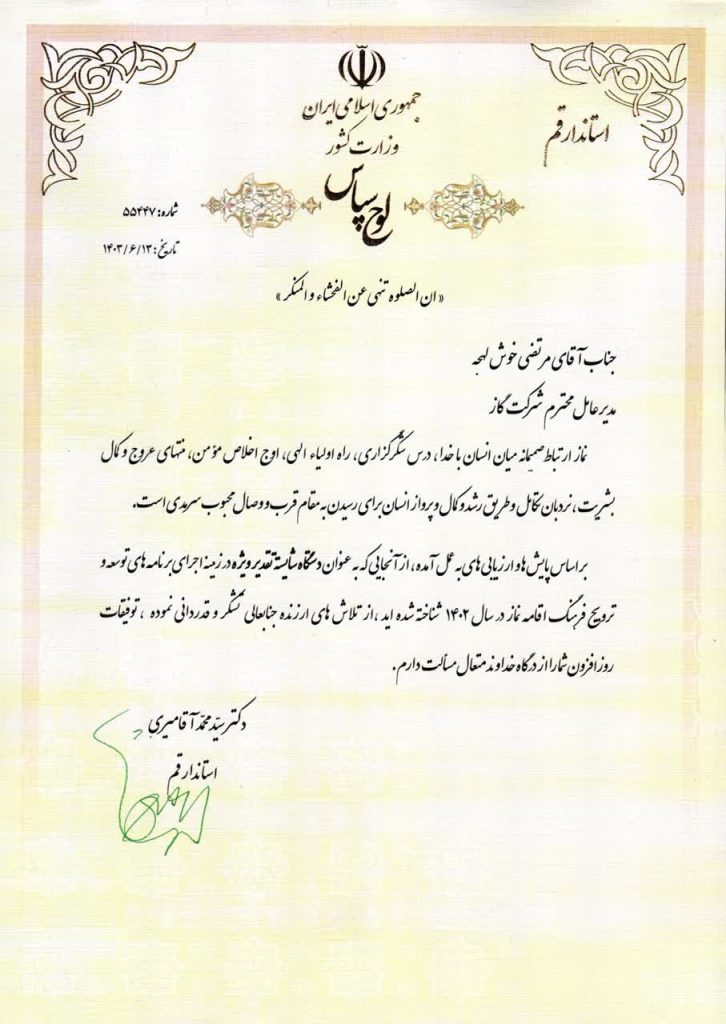 جمهوری اسلامی ایران
وزارت کشور
استاندار قم
لوح سپاس
شماره: ۵۵۴۴۷
تاریخ: ۱۴۰۳/۶/۱۳
« ان الصلوه تنهی عن الفحشاء و المنکر »
جناب آقای مرتضی خوش لهجه
مدیرعامل محترم شرکت گاز
نماز ارتباط صمیمانه میان انسان با خدا، درس شکرگزاری، راه اولیاء الهی، اوج اخلاص مؤمن، منتهای عروج و کمال
بشریت، نردبان تکامل و طریق رشد و کمال و پرواز انسان برای رسیدن به مقام قرب و وصال محبوب سرمدی است.
بر اساس پایش ها و ارزیابی های به عمل آمده، از آنجایی که به عنوان دستگاه شایسته تقدیر ویژه در زمینه اجرای برنامه های توسعه و
ترویج فرهنگ اقامه نماز در سال ۱۴۰۲ شناخته شده اید ، از تلاش های ارزنده جنابعالی تشکر و قدردانی نموده ، توفیقات
روزافزون شما را از درگاه خداوند متعال مسألت دارم.
دکتر سیّد محمّد آقامیری
استاندار قم